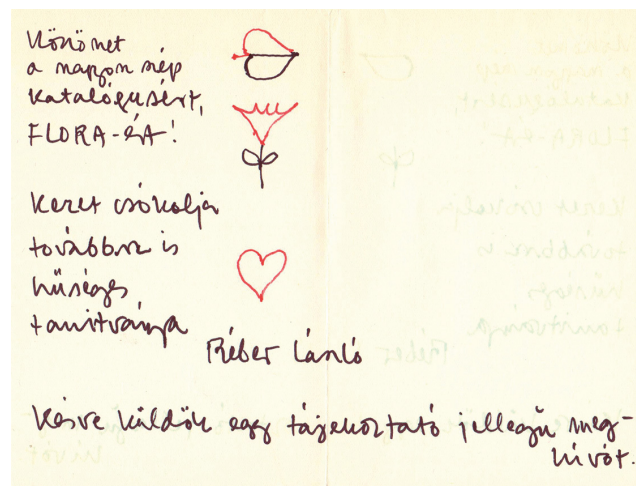 Köszönet
a nagyon szép
katalógusért,
FLORA-ÉA!
Kezét csókolja
továbbra is
hűséges
tanítványa
Réber László
Késve küldök egy tájékoztató jellegű meg-
hívót.